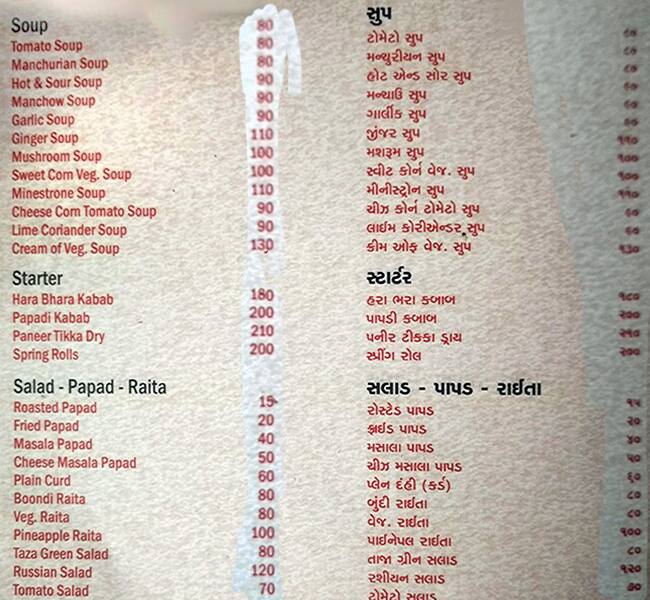 Soup 80
Tomato Soup 80
Manchurian Soup 80
Hot & Sour Soup 90
Manchow Soup 90
Garlic Soup 90
Ginger Soup 110
Mushroom Soup 100
Sweet Corn Veg. Soup 100
Minestrone Soup 110
Cheese Corn Tomato Soup 90
Lime Coriander Soup 90
Cream of Veg. Soup 130
Starter
Hara Bhara Kabab 180
Papadi Kabab 200
Paneer Tikka Dry 210
Spring Rolls 200
Salad - Papad - Raita
Roasted Papad 15
Fried Papad 20
Masala Papad 40
Cheese Masala Papad 50
Plain Curd 60
Boondi Raita 80
Veg. Raita 80
Pineapple Raita 100
Taza Green Salad 80
Russian Salad 120
Tomato Salad 70
સુપ ૮૦
ટોમેટો સુપ ૮૦
મન્ચુરીયન સુપ ૮૦
હોટ એન્ડ સોર સુપ ૯૦
મન્ચાઉ સુપ ૯૦
ગાર્લીક સુપ ૯૦
જીંજર સુપ ૧૧૦
મશરૂમ સુપ ૧૦૦
સ્વીટ કોર્ન વેજ. સુપ ૧૦૦
મીનીસ્ટ્રોન સુપ ૧૧૦
ચીઝ કોર્ન ટોમેટો સુપ ૯૦
લાઈમ કોરીએન્ડર સુપ ૯૦
ક્રીમ ઓફ વેજ. સુપ ૧૩૦
સ્ટાર્ટર
હરા ભરા કબાબ ૧૮૦
પાપડી કબાબ ૨૦૦
પનીર ટીક્કા ડ્રાય ૨૧૦
સ્પ્રીંગ રોલ ૨૦૦
સલાડ - પાપડ - રાઈતા
રોસ્ટેડ પાપડ ૧૫
ફ્રાઈડ પાપડ ૨૦
મસાલા પાપડ ૪૦
ચીઝ મસાલા પાપડ ૫૦
પ્લેન દંહી (કર્ડ) ૬૦
બુંદી રાઈતા ૮૦
વેજ. રાઈતા ૮૦
પાઈનેપલ રાઈતા ૧૦૦
તાજા ગ્રીન સલાડ ૮૦
રશીયન સલાડ ૧૨૦
ટોમેટો સલાડ ૭૦